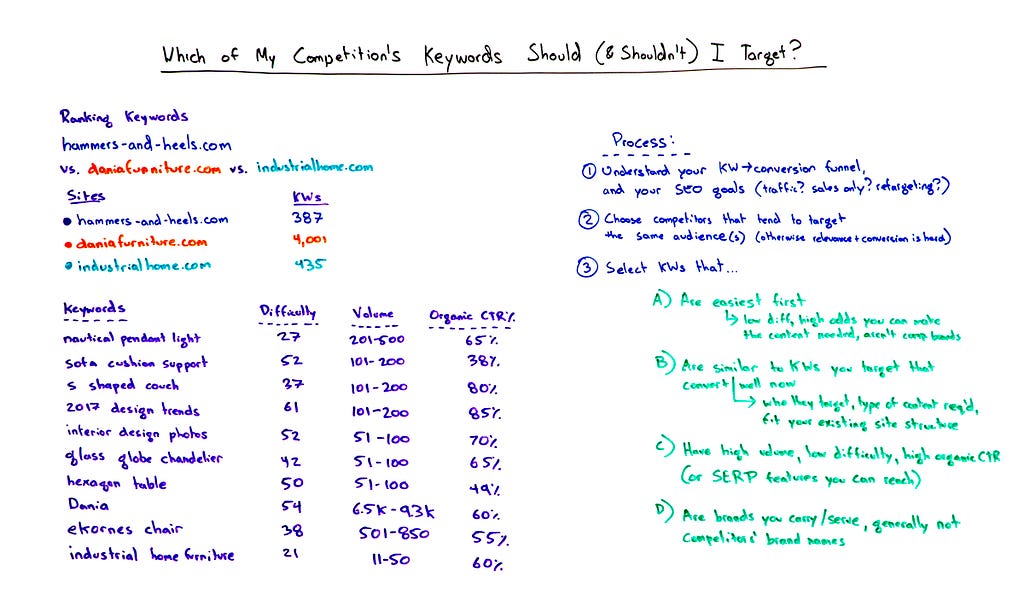 Which of My Competition's Keywords Should (& Shouldn't) I Target?
Ranking Keywords
hammers-and-heels.com
vs. daniafurniture.com vs. industrialhome.com
Sites KWs
hammers-and-heels.com 387
daniafurniture.com 4,001
industrialhome.com 435
Keywords Difficulty Volume Organic CTR%
nautical pendant light 27 201-500 65%
sofa cushion support 52 101-200 38%
s shaped couch 37 101-200 80%
2017 design trends 61 101-200 85%
interior design photos 52 51-100 70%
glass globe chandelier 42 51-100 65%
hexagon table 50 51-100 49%
Dania 54 6.5K-9.3K 60%
ekornes chair 38 501-850 55%
industrial home furniture 21 11-50 60%
Process:
① Understand your KW→conversion funnel,
and your SEO goals (traffic? sales only? retargeting?)
② Choose competitors that tend to target
the same audience(s) (otherwise relevance + conversion is hard)
③ Select KWs that...
A) Are easiest first
↳ low diff, high odds you can make
the content needed, aren't comp brands
B) Are similar to KWs you target that
convert well now
↳ who they target, type of content req'd,
fit your existing site structure
C) Have high volume, low difficulty, high organic CTR
(or SERP features you can reach)
D) Are brands you carry/serve, generally not
Competitors' brand names